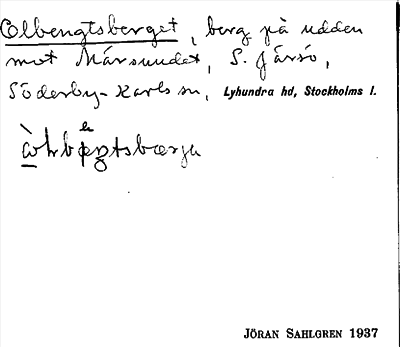 Olbengtsberget, berg på udden
mot Mårsundet, S. Järsö,
Söderby-Karls sn, Lyhundra hd, Stockholms l.
JÖRAN SAHLGREN 1937